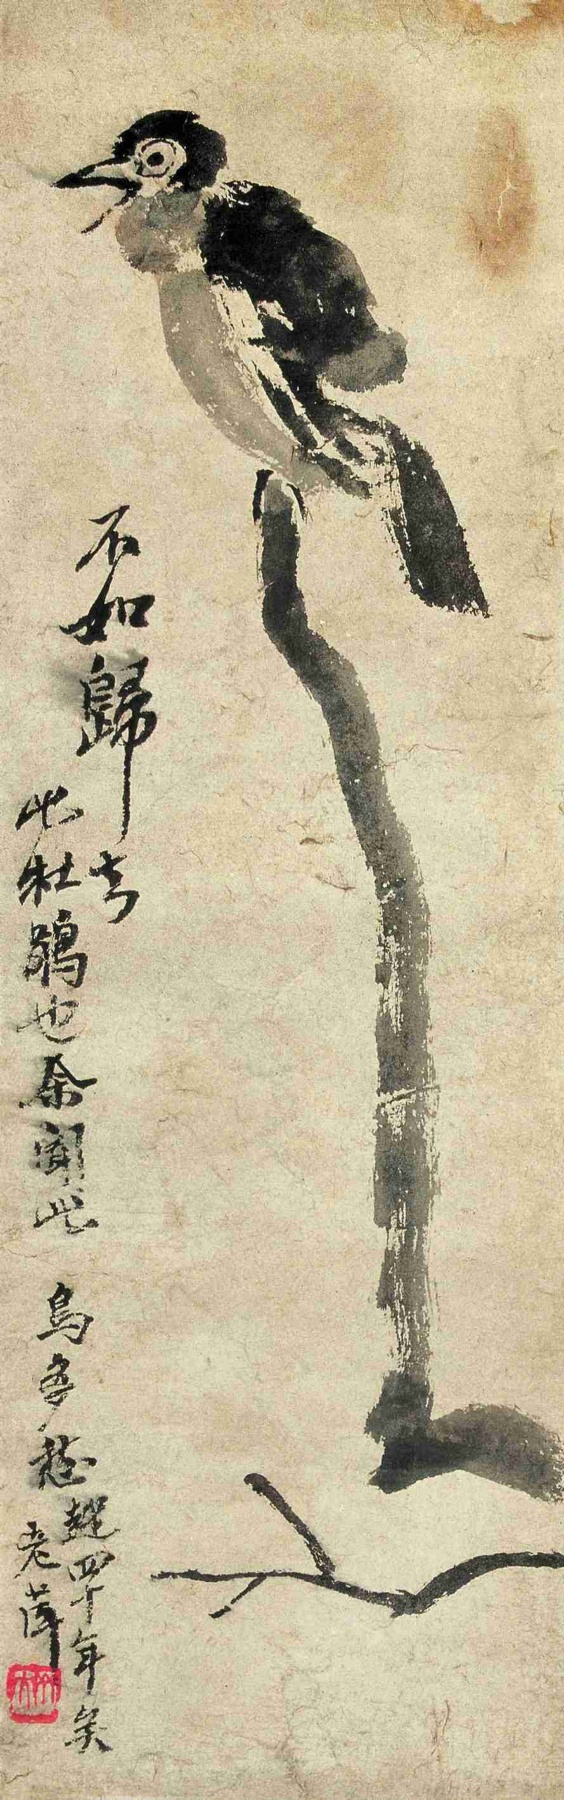 不如歸去
此杜鵑也余聞此鳥多愁
四十年矣
老萍